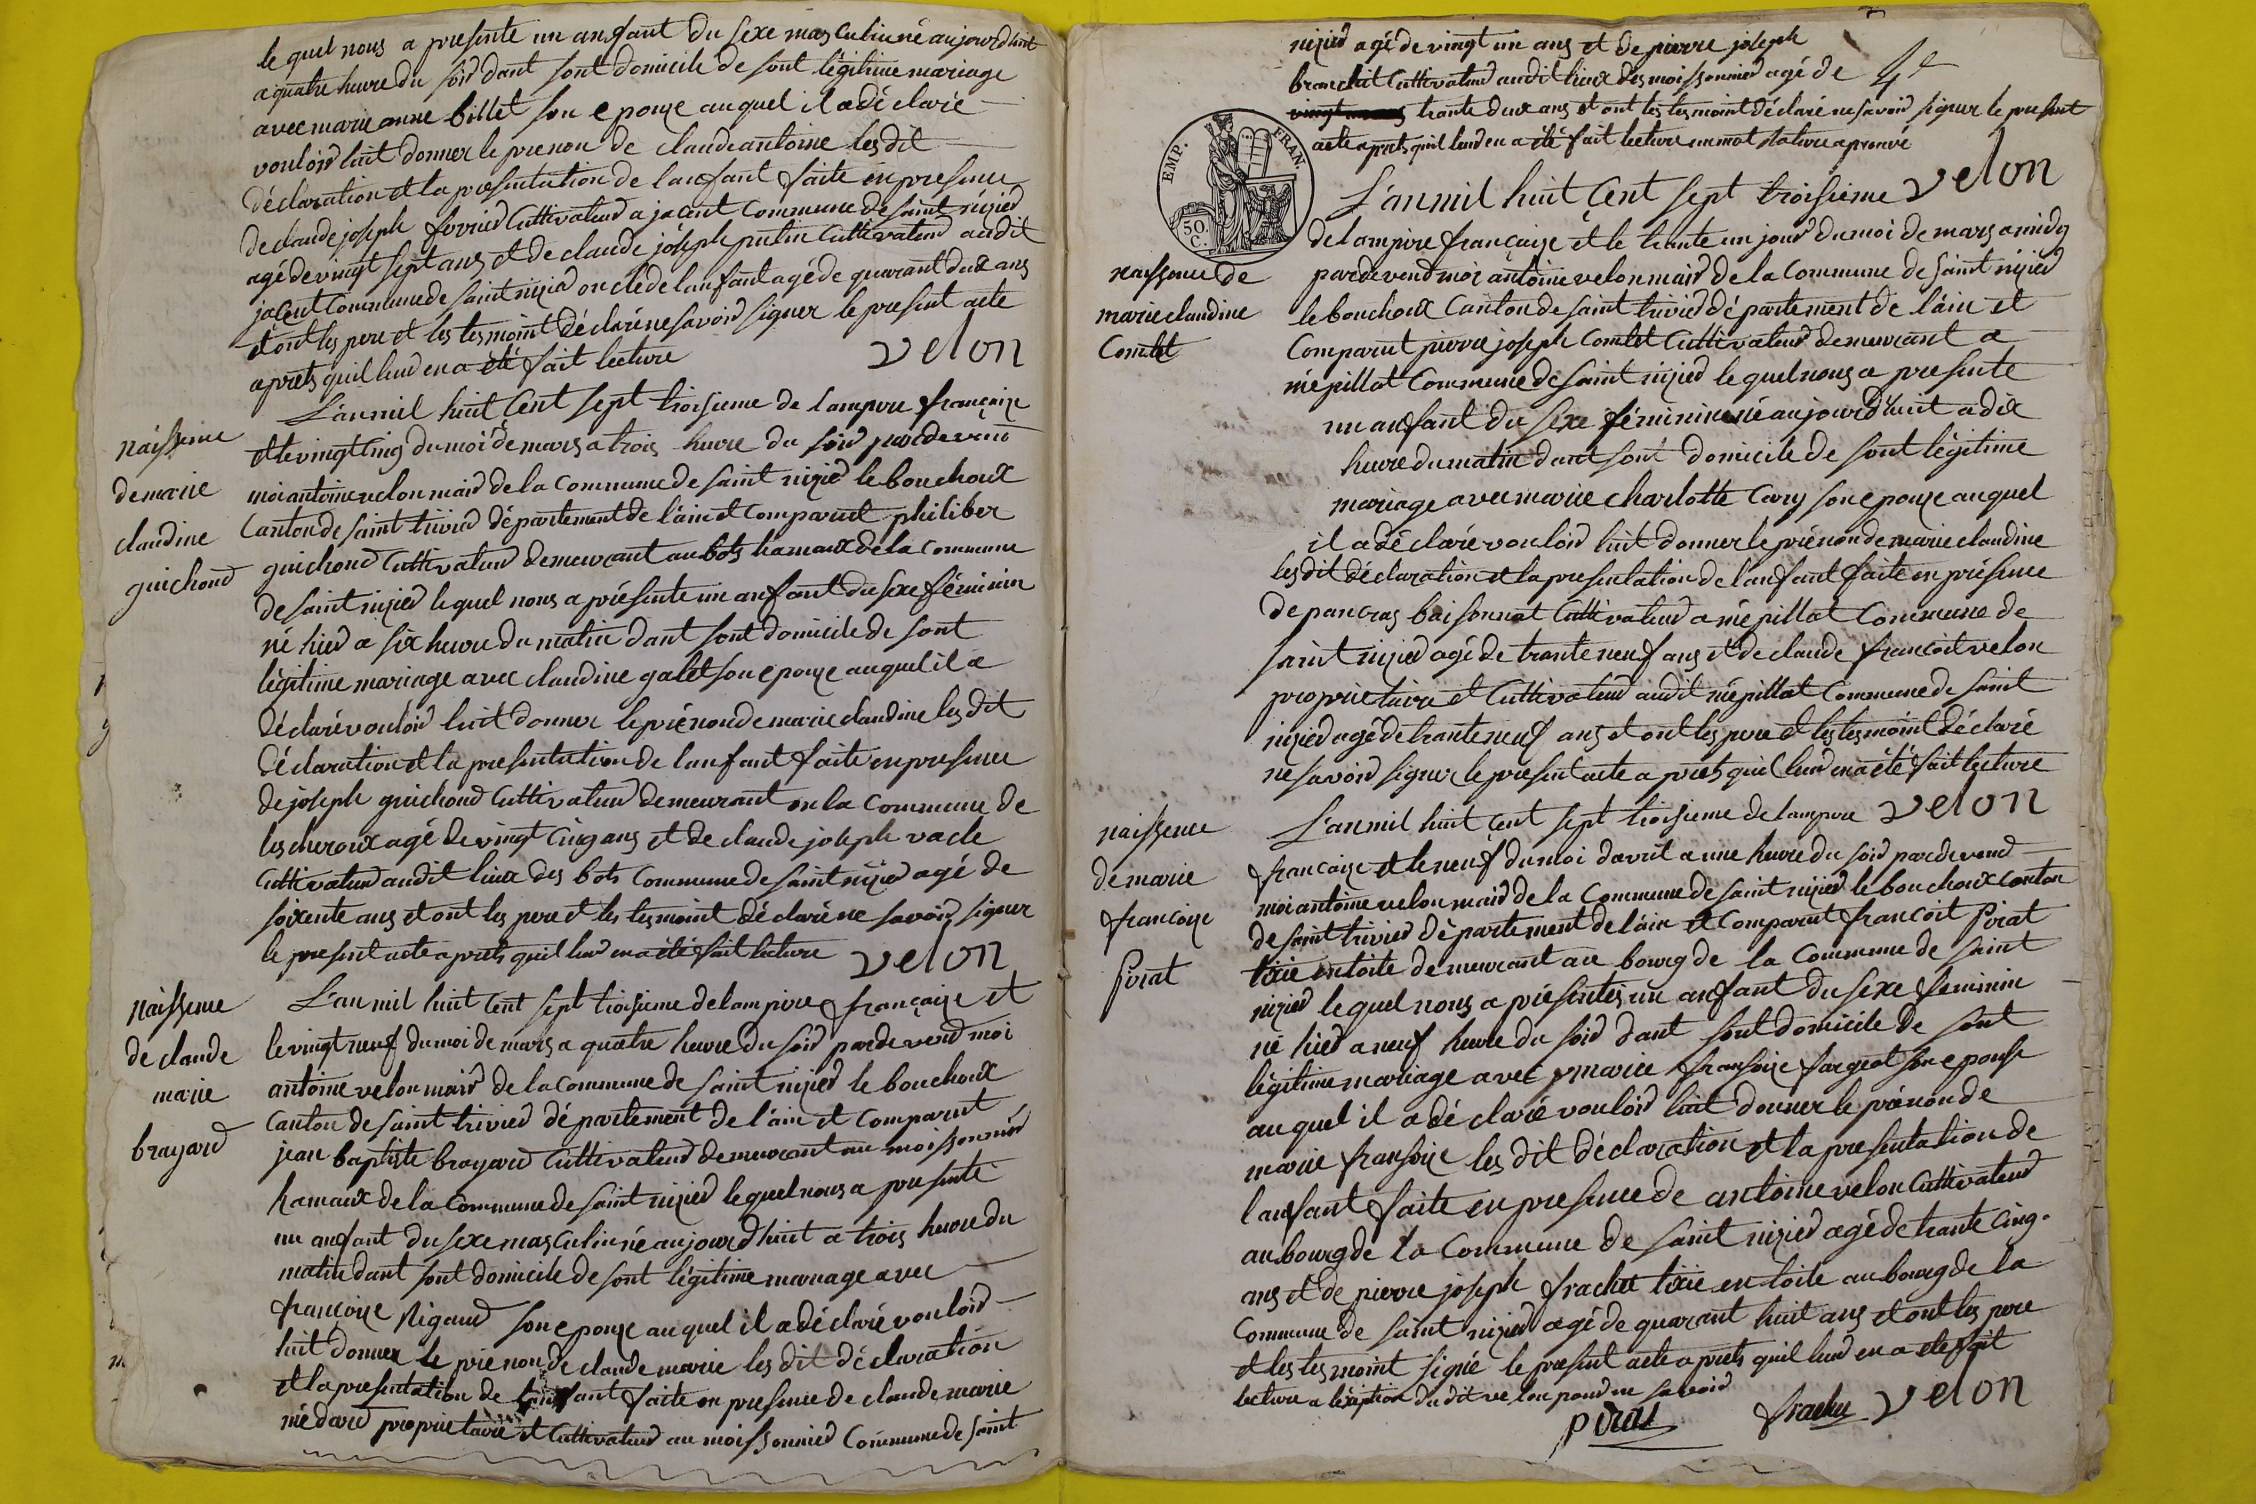 le quel nous a presenté un anfant du sexe masculin né aujourdhuit
a quatre heure du soir dant sont domicile de sont légitime mariage
avec marie anne billet son epouze au quel il a déclaré
vouloir luit donner le prenon de claude antoine les dit
déclaration et la presentation de lanfant faite en presence
de claude joseph cultivateur a jacent commune de saint nizier
agé de vingt sept ans et de claude joseph putin cultivateur au dit
jacent commune de saint nizier oncle de lanfant agé de quarant deux ans
et ont les pere et les tesmoint déclaré ne savoir signer le present acte
aprets quil leur en a été fait lecture velon
naissence
de marie
claudine
guichond
L'an mil huit cent sept troisieme de lampire françaize
et le vingt cinq du moi de mars a trois heure du soir par devend
moi antoine velon mair de la commune de saint nizier le bouchoux
canton de saint trivier département de l'ain et comparut philiber
guichond cultivateur demeurant au bots hamaux de la commune
de saint nizier le quel nous a présenté un anfant du sexe féminin
né hier a six heure du matin dant sont domicile de sont
légitime mariage avec claudine galet son epouze au quel il a
déclaré vouloir luit donner le prénon de marie claudine les dit
déclaration et la presentation de lanfant faite en presence
de joseph guichond cultivateur demeurant en la commune de
les cheroux agé de vingt cinq ans et de claude joseph vacle
cultivateur au dit lieux des bots commune de saint nizier agé de
soixente ans et ont les pere et les tesmoint déclaré ne savoir signer
le present acte aprets quil leur en a été fait lecture velon
naissence
de claude
marie
brayard
L'an mil huit cent sept troisieme de lampire françaize et
le vingt neuf du moi de mars a quatre heure du soir par devend moi
antoine velon mair de la commune de saint nizier le bouchoux
canton de saint trivier département de l'ain et comparut
jean baptiste brayard cultivateur demeurant au moissonnier
hamaux de la commune de saint nizier le quel nous a presenté
un anfant du sexe masculin né aujourdhuit a trois heure du
matin dant sont domicile de sont légitime mariage avec
françoize Rigaud son epouze au quel il a déclaré vouloir
luit donner le prénon de claude marie les dit déclaration
et la presentation de lanfant faite en presence de claude marie
médard proprietaire et cultivateur au moissonnier commune de saint
nizier agé de vingt un ans et de pierre joseph
cultivateur au dit lieux des moissonnier agé de
trante deux ans et ont les tesmoint déclaré ne savoir signer le present
acte aprets quil leur en a été fait lecture un mot rature aprouvé
velon
EMP. FRAN.
50.
C.
naissence de
marie claudine
Comtet
L'an mil huit cent sept troisieme
de lampire françaize et le trante un jour du moi de mars a midy
par devend moi antoine velon mair de la commune de saint nizier
le bouchoux canton de saint trivier département de l'ain et
comparut pierre joseph comtet cultivateur demeurant a
mépillat commune de saint nizier le quel nous a presenté
un anfant du sexe féminin né aujourdhuit a dix
heure du matin dant sont domicile de sont légitime
mariage avec marie charlotte cary son epouze au quel
il a déclaré vouloir luit donner le prénon de marie claudine
les dit déclaration et la presentation de lanfant faite en présence
de pancras baisonnat cultivateur a mépillat commune de
saint nizier agé de trante neuf ans et de claude françoit velon
proprietaire et cultivateur au dit mépillat commune de saint
nizier agé de trante neuf ans et ont les pere et les tesmoint déclaré
ne savoir signer le present acte aprets quil leur en a été fait lecture
velon
naissence
de marie
françoize
Pirat
L'an mil huit cent sept troisieme de lampire
françaize et le neuf du moi d'avril a une heure du soir par devend
moi antoine velon mair de la commune de saint nizier le bouchoux canton
de saint trivier département de l'ain et comparut françoit Pirat
tixie en toile demeurant au bourg de la commune de saint
nizier le quel nous a présentés un anfant du sexe feminin
né hier a neuf heure du soir dant sont domicile de sont
légitime mariage avec marie fransoize fargeot son epouse
au quel il a déclaré vouloir luit donner le prénon de
marie fransoize les dit déclaration et la presentation de
lanfant faite en presence de antoine velon cultivateur
au bourg de la commune de saint nizier agé de trante cinq
ans et de pierre joseph frachet tixie en toile au bourg de la
commune de saint nizier agé de quarant huit ans et ont les pere
et les tesmoint signée le present acte aprets quil leur en a ete fait
lecture a léxeption du dit velon pour ne savoir
pirat frachet velon